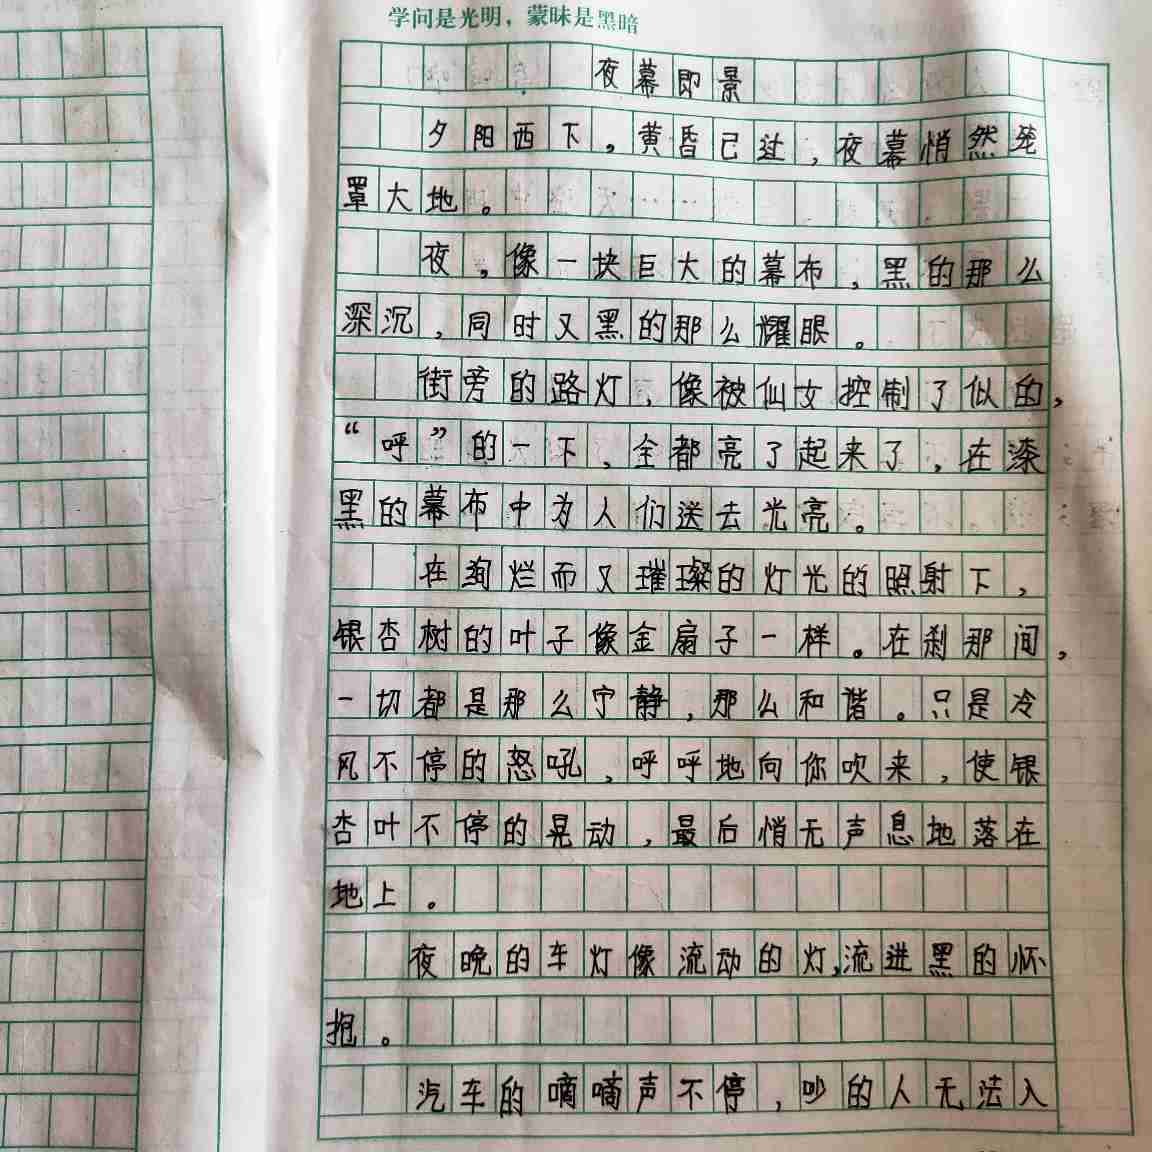 学问是光明，蒙昧是黑暗
夜幕即景
夕阳西下，黄昏已过，夜幕悄然笼
罩大地。
夜，像一块巨大的幕布，黑的那么
深沉，同时又黑的那么耀眼。
街旁的路灯，像被仙女控制了似的，
“呼”的一下，全都亮了起来了，在漆
黑的幕布中为人们送去光亮。
在绚烂而又璀璨的灯光的照射下，
银杏树的叶子像金扇子一样。在刹那间，
一切都是那么宁静，那么和谐。只是冷
风不停的怒吼，呼呼地向你吹来，使银
杏叶不停的晃动，最后悄无声息地落在
地上。
夜晚的车灯像流动的灯，流进黑的怀
抱。
汽车的嘀嘀声不停，吵的人无法入